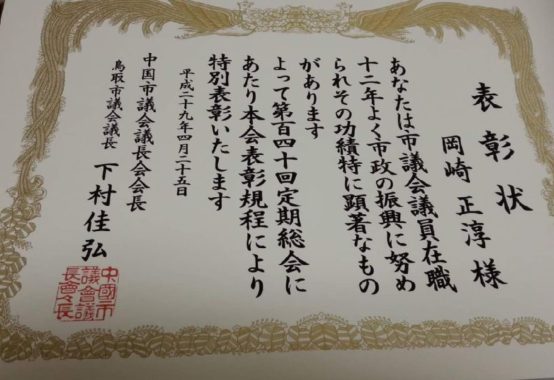 表彰状
岡崎 正淳 様
あなたは市議会議員在職
十二年よく市政の振興に努め
られその功績特に顕著なもの
があります
よって第百四十回定期総会に
あたり本会表彰規程により
特別表彰いたします
平成二十九年四月二十五日
中国市議会議長会会長
鳥取市議会議長 下村佳弘
中國市
議會議
長會会長